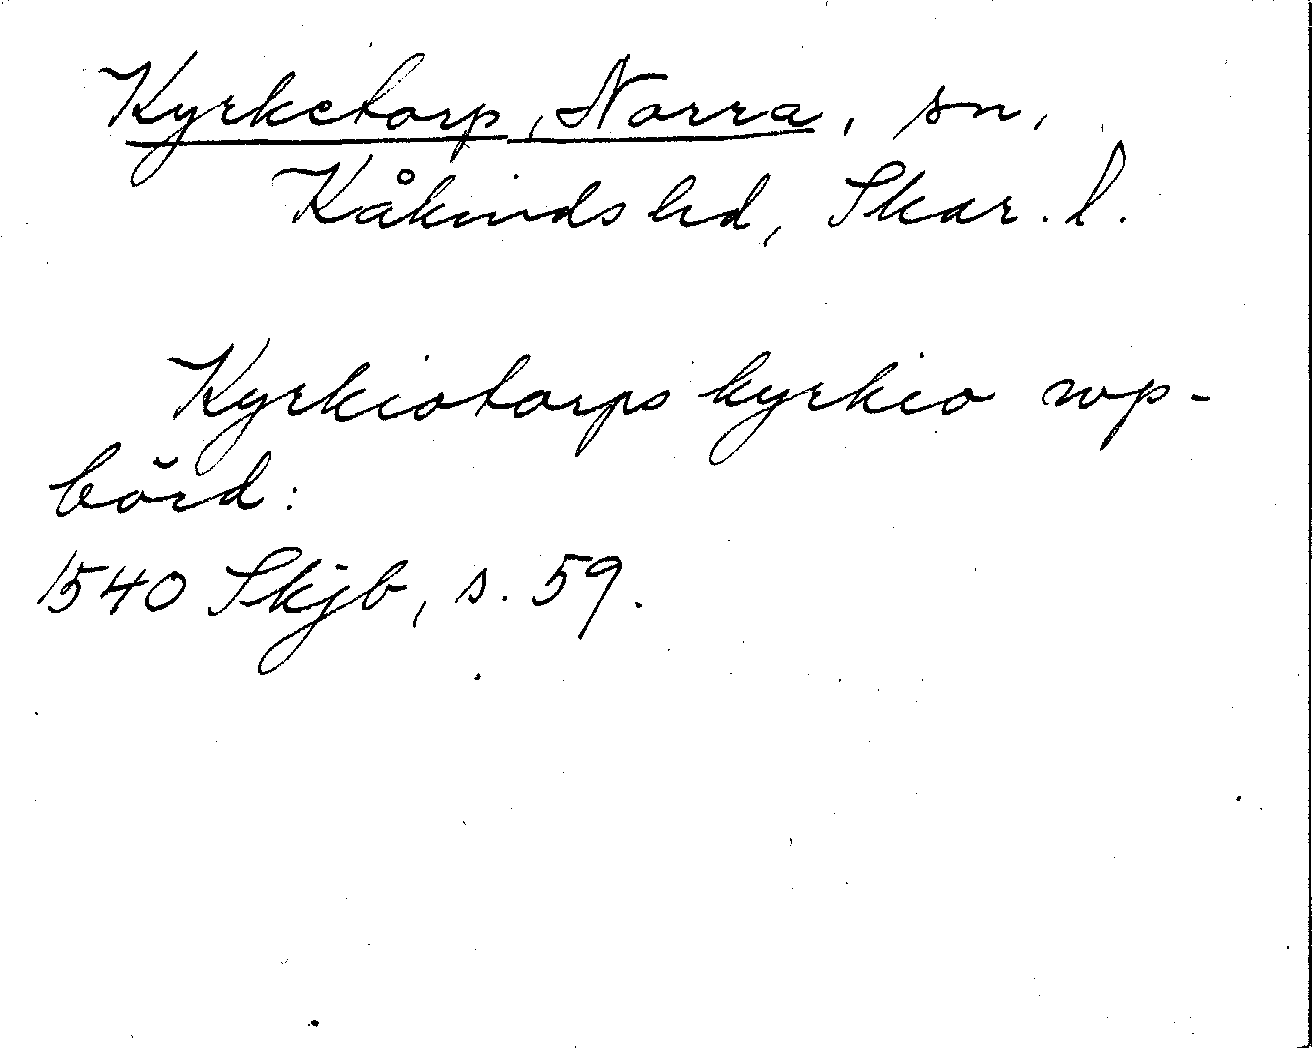 Kyrketorp, Norra, sn,
Kåkinds hd, Skar. l.
Kyrkiotorps kyrkio wp-
börd:
1540 Skjb, s. 59.